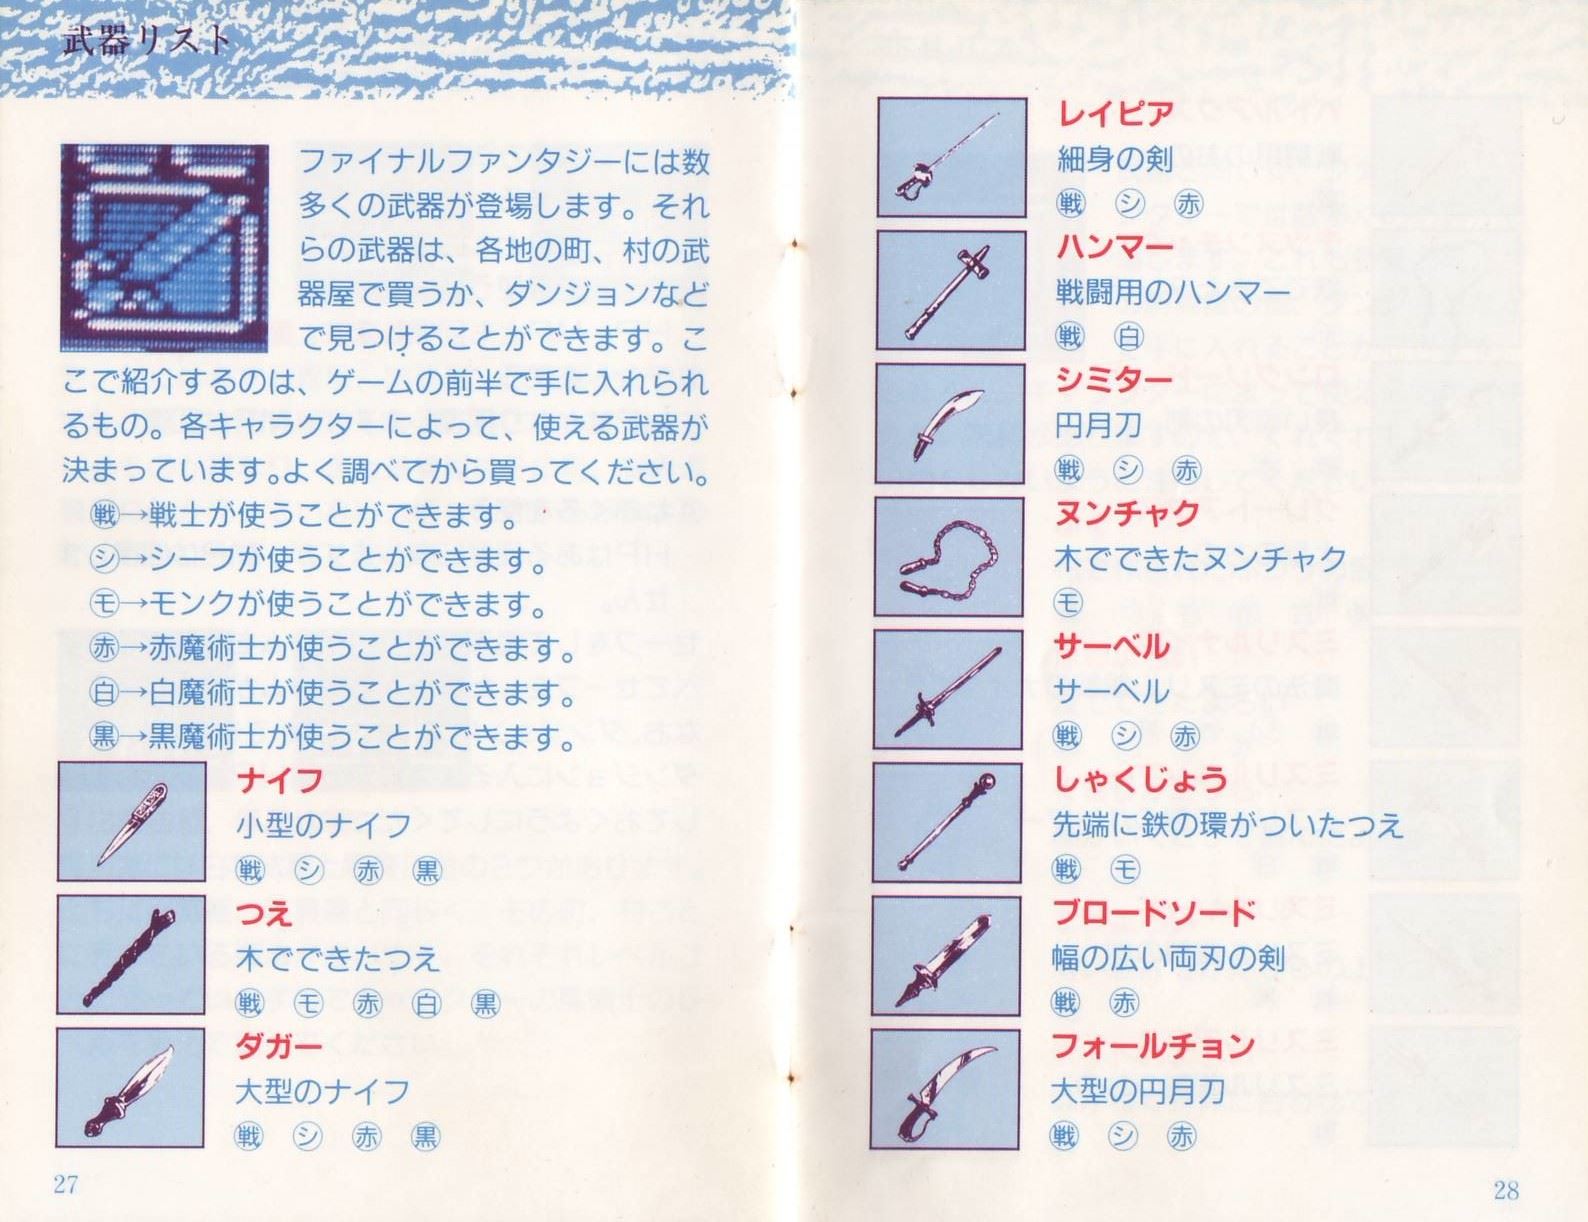 武器リスト
ファイナルファンタジーには数
多くの武器が登場します。それ
らの武器は、各地の町、村の武
器屋で買うか、ダンジョンなど
で見つけることができます。こ
こで紹介するのは、ゲームの前半で手に入れられ
るもの。各キャラクターによって、使える武器が
決まっています。よく調べてから買ってください。
㊋戦→戦士が使うことができます。
シ→シーフが使うことができます。
モ→モンクが使うことができます。
赤→赤魔術士が使うことができます。
白→白魔術士が使うことができます。
黒→黒魔術士が使うことができます。
ナイフ
小型のナイフ
戦 シ 赤 黒
つえ
木でできたつえ
戦 モ 赤 白 黒
ダガー
大型のナイフ
戦 シ 赤 黒
27
レイピア
細身の剣
戦 シ 赤
ハンマー
戦闘用のハンマー
戦 白
シミター
円月刀
戦 シ 赤
ヌンチャク
木でできたヌンチャク
モ
サーベル
サーベル
戦 シ 赤
しゃくじょう
先端に鉄の環がついたつえ
戦 モ
ブロードソード
幅の広い両刃の剣
戦 赤
フォールチョン
大型の円月刀
戦 シ 赤
28